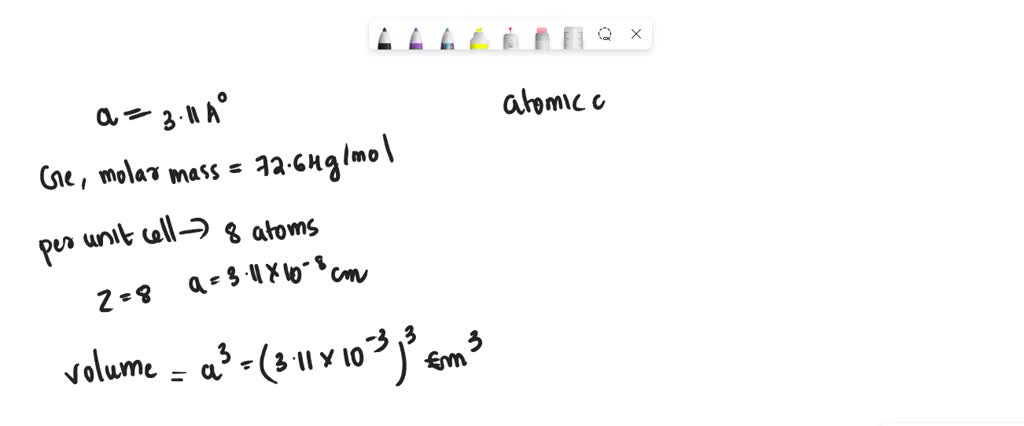 a = 3.11 A°
atomic c
Ge, molar mass = 72.64g/mol
per unit cell → 8 atoms
Z = 8 a = 3.11 × 10⁻⁸ cm
volume = a³ = (3.11 × 10⁻³)³ cm³